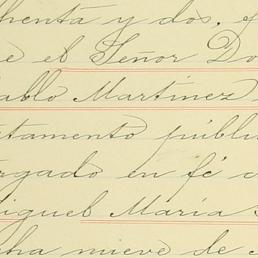 chenta y dos, y
e el Señor Do
ablo Martinez
stamento públi
rgado en fé c
iguel Maria
cha nueve de